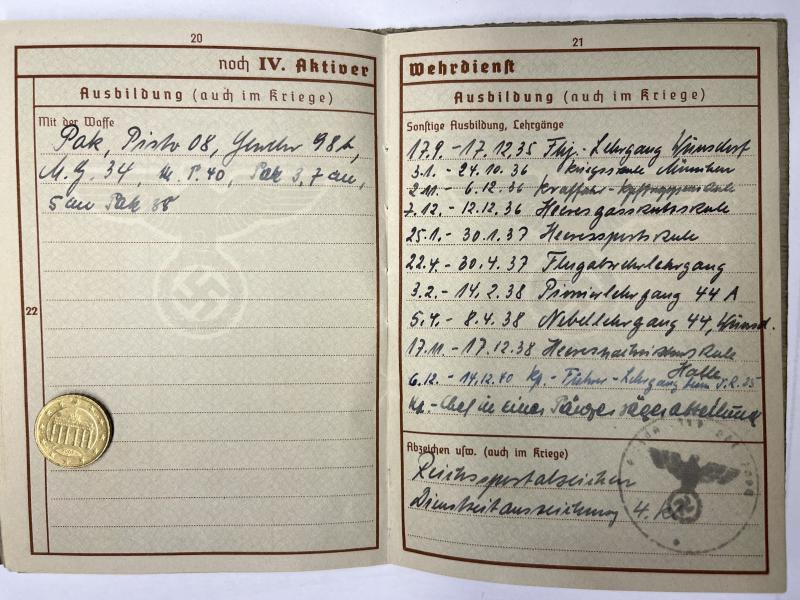 20
noch IV. Aktiver
Ausbildung (auch im Kriege)
Mit der Waffe
Pak, Pistv 08, Gewehr 98k,
M.G. 34, M.P. 40, Pak 3,7 cm,
5 cm Pak 38
22
21
Wehrdienst
Ausbildung (auch im Kriege)
Sonstige Ausbildung, Lehrgänge
17.9. - 17.12.35 Fhj.-Lehrgang Wünsdorf
3.1. - 24.10.36 Kriegsschule München
2.11. - 6.12.36
7.12. - 12.12.36 Heeresgasschutzschule
25.1. - 30.1.37 Heeressportschule
22.4. - 30.4.37 Flugabwehrlehrgang
3.2. - 14.2.38 Pionierlehrgang 44 A
5.4. - 8.4.38 Nebellehrgang 44, Wünsd.
17.11. - 17.12.38
Halle
6.12. - 14.12.40 Kp.-Führer-Lehrgang beim
Kp.-Chef in einer Panzerjägerabteilung
Abzeichen usw. (auch im Kriege)
Reichssportabzeichen
Dienstzeitauszeichnung 4. Kl.